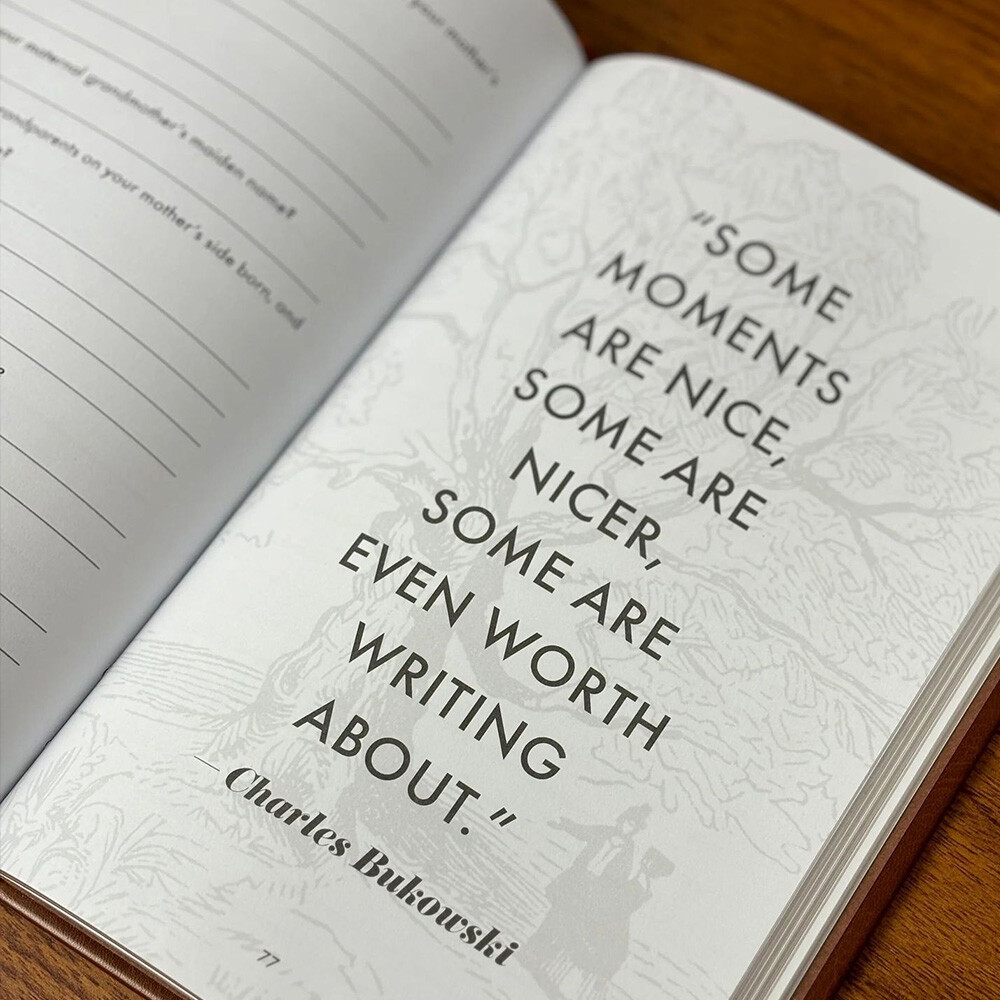 your mother's
maternal grandmother's maiden name?
grandparents on your mother's side born, and
"SOME
MOMENTS
ARE NICE,
SOME ARE
NICER,
SOME ARE
EVEN WORTH
WRITING
ABOUT."
— Charles Bukowski
77